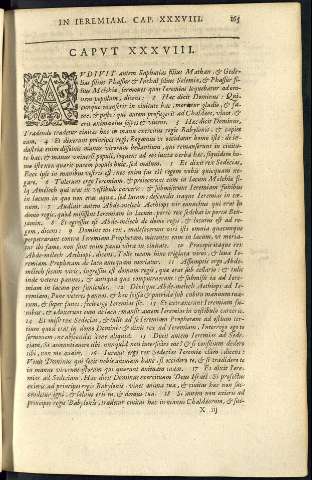 IN IEREMIAM. CAP. XXXVIII. 165
CAPVT XXXVIII.
AVDIVIT autem Saphatias filius Mathan, & Gede-
lias filius Phassur & Iuchal filius Selemiæ, & Phassur fi-
lius Melchiæ, sermones quos Ieremias loquebatur ad om-
nem populum, dicens: 2 Hæc dicit Dominus: Qui-
cunque manserit in civitate hac, morietur gladio, & fa-
me, & peste: qui autem profugerit ad Chaldæos, vivet, &
erit anima eius & vivens. 3 Hæc dicit Dominus,
Tradendo tradetur civitas hæc in manu exercitus regis Babylonis, & capiet
eam. 4 Et dixerunt principes regi, Rogamus vt occidatur homo iste: de in-
dustria enim dissolvit manus virorum bellantium, qui remanserunt in civita-
te hac, & manus vniversi populi, loquens ad eos verba
5 Et dixit rex Sedecias,
Ecce ipse in manibus vestris est: nec enim fas est regem vobis quicquam ne-
gare. 6 Tulerunt ergo Ieremiam, & proiecerunt eum in lacum
in lacum in quo non erat aqua, sed lutum: descendit itaque Ieremias in cœ-
num. 7 Audivit autem Abdemelech Aethiops vir eunuchus qui erat in
domo regis, quod misissent Ieremiam in lacum: porro rex sedebat in porta Ben-
iamin. 8 Et egressus est Abdemelech de domo regis, & locutus est ad re-
gem, dicens: 9 Domine mi rex, malefecerunt viri isti omnia quæcunque
perpetrarunt contra Ieremiam Prophetam, mittentes eum in lacum, vt moria-
tur ibi fame, non sunt enim panes vltra in civitate. 10 Præcepit itaque rex
Abdemelech Aethiopi, dicens, Tolle tecum hinc triginta viros, & leva Ie-
remiam Prophetam de lacu antequam moriatur. 11 Assumptis ergo Abde-
melech secum viris, ingressus est domum regis, quæ erat sub cellario: & tulit
inde veteres pannos, & antiqua quæ computruerant: & submisit ea ad Iere-
miam in lacum per funiculos. 12 Dixitque Abdemelech Aethiops ad Iere-
miam, Pone veteres pannos, & hæc scissa & putrida sub cubito manuum tua-
rum, & super funes: fecit ergo Ieremias sic. 13 Et extraxerunt Ieremiam fu-
nibus, & eduxerunt eum de lacu: mansit autem Ieremias in vestibulo carceris.
14 Et misit rex Sedecias, & tulit ad se Ieremiam Prophetam ad ostium ter-
tium quod erat in domo Domini: & dixit rex ad Ieremiam, Interrogo ego te
sermonem: ne abscondas a me aliquid. 15 Dixit autem Ieremias ad Sede-
ciam, Si annuntiavero tibi, nunquid non interficies me? & si consilium dedero
tibi, non me audies. 16 Iuravit rex Sedecias Ieremiæ clam dicens:
Vivit Dominus qui fecit nobis animam hanc, si occidero te, & si tradidero te
in manus virorum istorum qui quærunt animam tuam. 17 Et dixit Iere-
mias ad Sedeciam, Hæc dicit Dominus exercituum Deus Israel: Si profectus
exieris ad principes regis Babylonis, vivet anima tua, & civitas hæc non suc-
cendetur igni: & salvus eris tu, & domus tua. 18 Si autem non exieris ad
principes regis Babylonis, tradetur civitas hæc in manus Chaldæorum, & suc-
X iij